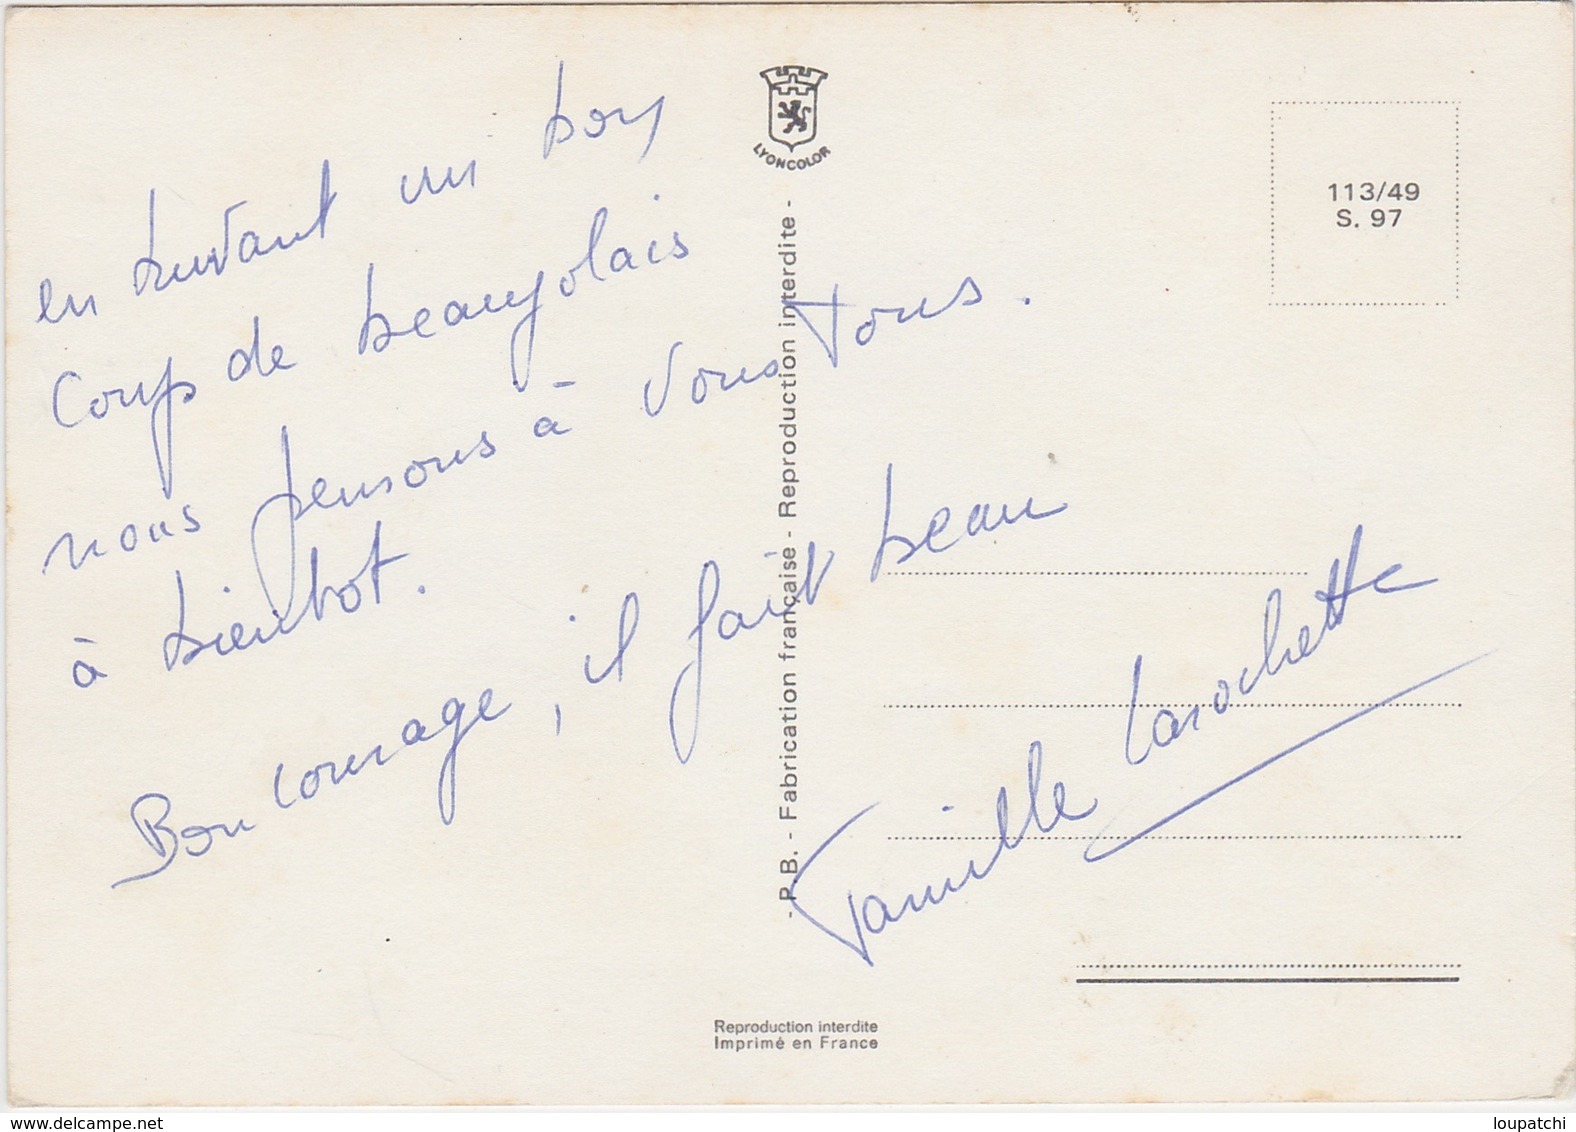 en buvant un bon
coup de beaujolais
nous pensons à vous tous.
à bientot.
Bon courage, il fait beau
Famille Larochette
LYONCOLOR
- P.B. - Fabrication française - Reproduction interdite - Reproduction interdite -
113/49
S. 97
Reproduction interdite
Imprimé en France
delcampe.net
loupatchi